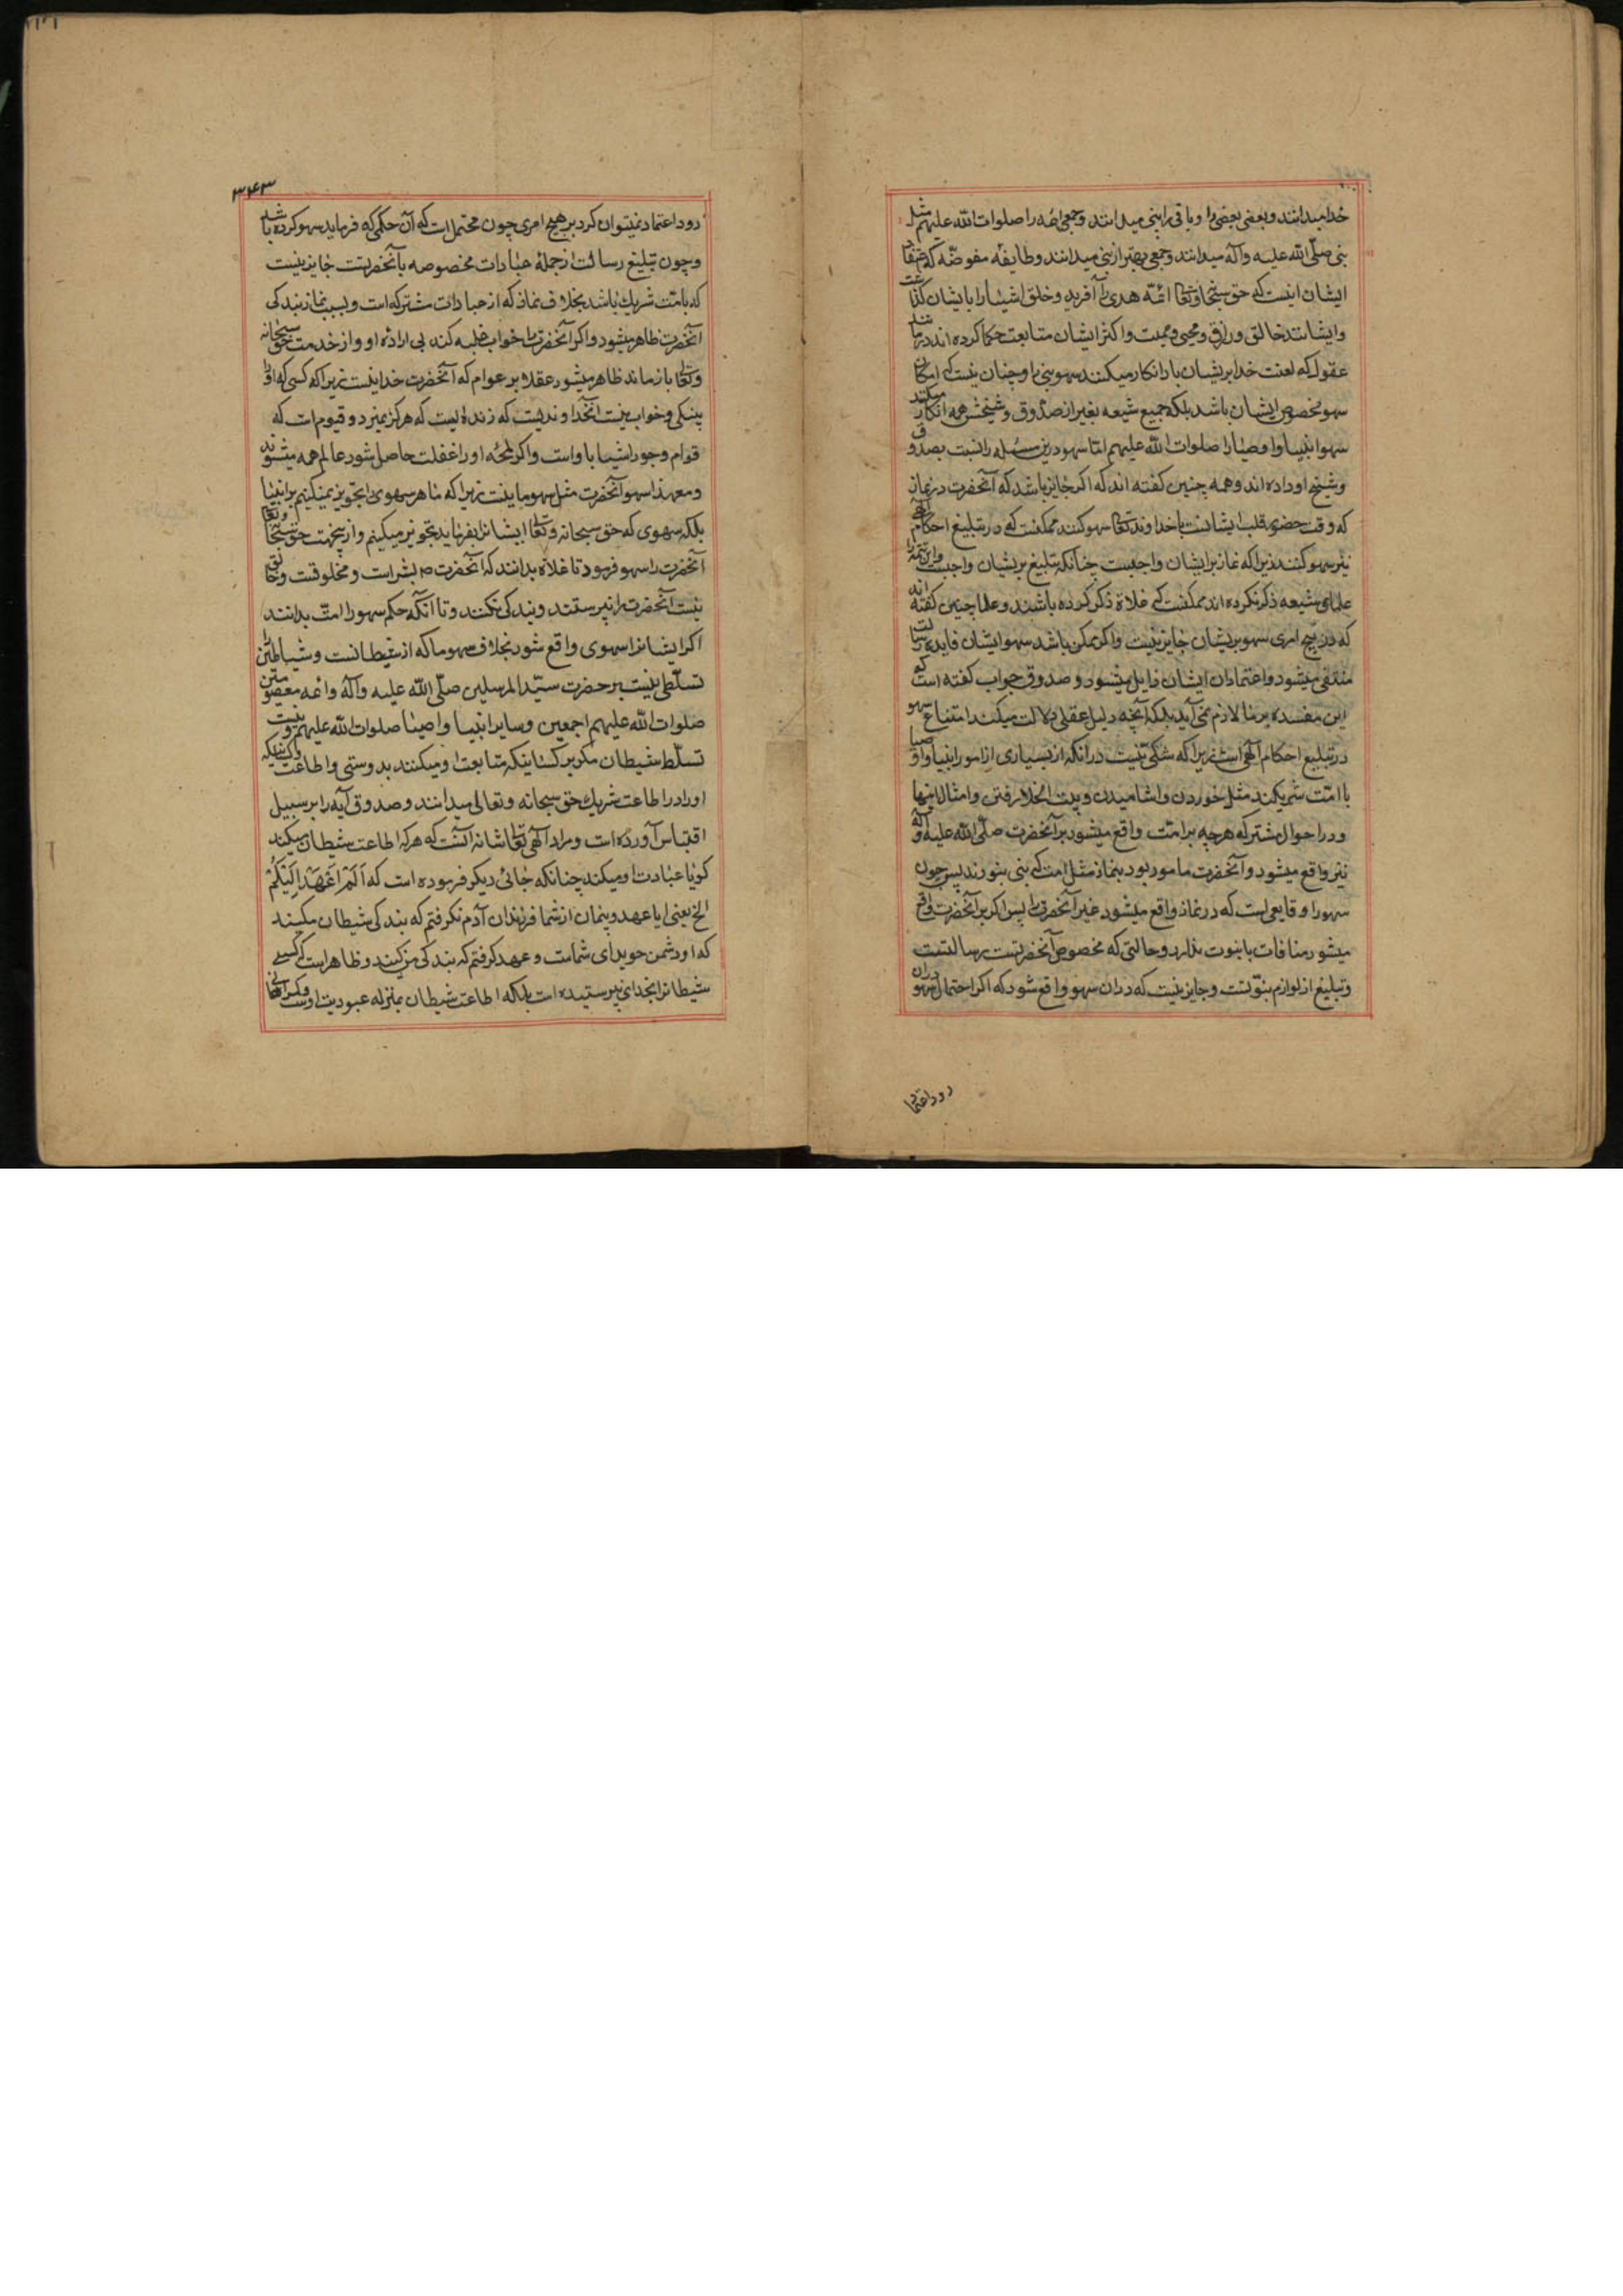 خدا میدانند و بعضی بعضی را و باقی را نبی میدانند و جمعی ائمه را صلوات الله علیهم مثل
نبی صلّی الله علیه وآله میدانند و جمعی بهتر از نبی میدانند و طایفه مفوضّه که اعتقاد
ایشان اینست که حق سبحانه و تعالی ائمّه هدی را آفرید و خلق اشیا را بایشان گذاشت
و ایشانند خالق و رازق و محیی و ممیت و اکثر ایشان متابعت حکما کرده اند در
عقول که لعنت خدا بر یشان باد انکار میکنند سهو نبی را و چنان نیست که امکان
سهو مخصوص ایشان باشد بلکه جمیع شیعه بغیر از صدوق و شیخش همه انکار میکنند
سهو انبیا و اوصیا را صلوات الله علیهم امّا سهو درین مسئله را نسبت بصدوق
و شیخ او داده اند و همه چنین گفته اند که اگر جایز باشد که آنحضرت در نماز
که وقت حضور قلب ایشانست با خداوند تعالی سهو کنند ممکنست که در تبلیغ احکام الهی
نیز سهو کنند زیرا که نماز بر ایشان واجبست چنانکه تبلیغ بریشان واجبست و این تتمه را
علمای شیعه ذکر نکرده اند ممکنست که غلاة ذکر کرده باشند و علما چنین گفته اند
که در هیچ امری سهو بریشان جایز نیست و اگر ممکن باشد سهو ایشان فایده رسالت
منتفی میشود و اعتماد از ایشان زایل میشود و صدوق جواب گفته است که
این مفسده بر ما لازم نمی آید بلکه آنچه دلیل عقلی دلالت میکند امتناع سهو
در تبلیغ احکام الهی است زیرا که شکی نیست در آنکه در بسیاری از امور انبیا و اوصیا
با امّت شریکند مثل خوردن و اشامیدن و بیت الخلا رفتن و امثال اینها
و در احوال مشترکه هر چه بر امّت واقع میشود بر آنحضرت صلّی الله علیه وآله
نیز واقع میشود و آنحضرت مامور بود بنماز مثل امت که نبی نبورند پس چون
سهو از وقایعی است که در نماز واقع میشود غیر آنحضرت را پس اگر بر آنحضرت واقع
میشود منافات با نبوت ندارد و حالتی که مخصوص آنحضرتست رسالتست
و تبلیغ از لوازم نبوّتست و جایز نیست که در ان سهو واقع شود که اگر احتمال سهو دران
رود اعتماد
۳۴۳
رود اعتماد نمیتوان کرد بر هیچ امری چون محتمل است که آن حکمی که فرماید سهو کرده باشد
و چون تبلیغ رسالت از جملهٔ عبادات مخصوصه بآنحضرتست جایز نیست
که با امّت شریک باشد بخلاف نماز که از عبادات مشترکه است و بسبب نماز بندگی
آنحضرت ظاهر میشود و اگر آنحضرت را خواب غلبه کند بی اراده او و از خدمت حق سبحانه
و تعالی باز ماند ظاهر میشود عقلا بر عوام که آنحضرت خدا نیست زیرا که کسی که او را
پینکی و خواب نیست آنخداوندیست که زنده ایست که هرگز نمیرد و قیوم است که
قوام وجود اشیا با واست و اگر لمحهٔ او را غفلت حاصل شود عالم همه میشوند
و معهذا سهو آنحضرت مثل سهو ما نیست زیرا که ما هر سهوی را تجویز نمیکنیم بر انبیا
بلکه سهوی که حق سبحانه و تعالی ایشانرا بفرماید تجویز میکنیم و ازینجهت حق سبحانه و تعالی
آنحضرت را سهو فرمود تا غلاة بدانند که آنحضرت بشر است و مخلوقست و خالق
نیست آنحضرت را نپرستند و بندگی نکنند و تا آنکه حکم سهو را امّت بدانند
اگر ایشانرا سهوی واقع شود بخلاف سهو ما که از شیطانست و شیاطین را
تسلّطی نیست بر حضرت سیّد المرسلین صلّی الله علیه وآله و ائمه معصومین
صلوات الله علیهم اجمعین و سایر انبیا و اوصیا صلوات الله علیهم و نیست
تسلّط شیطان مگر بر کسانیکه متابعت او میکنند بدوستی و اطاعت و کسانیکه
او را در اطاعت شریک حق سبحانه و تعالی میدانند و صدوق آیه را بر سبیل
اقتباس آورده است و مراد الهی تعالی شانه آنست که هر که اطاعت شیطان میکند
گویا عبادت او میکند چنانکه جائی دیگر فرموده است که اَلَمْ اَعْهَدْ اِلَیْکُمْ
الخ یعنی ایا عهد و پیمان از شما فرزندان آدم نگرفتم که بندگی شیطان مکنید
که او دشمن هویدای شماست و عهد گرفتم که بندگی من کنید و ظاهر است که کسی
شیطانرا بخدای نپرستیده است بلکه اطاعت شیطان بمنزله عبودیت اوست